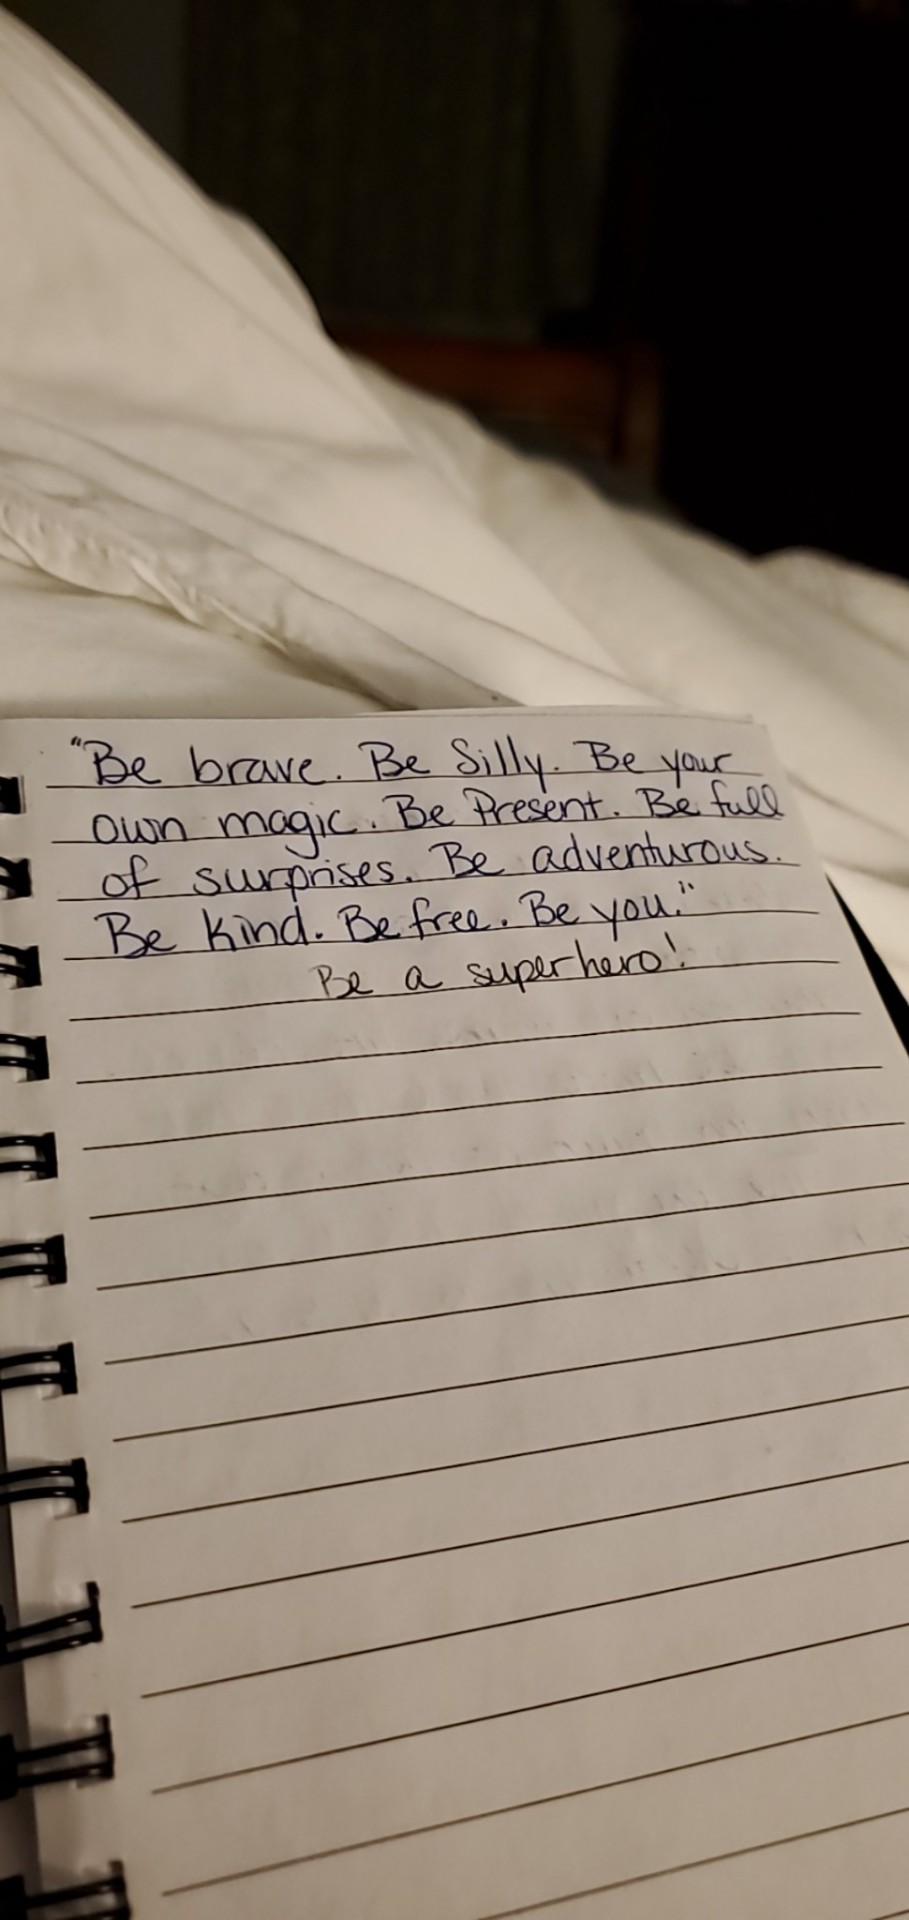 "Be brave. Be Silly. Be your
own magic. Be Present. Be full
of surprises. Be adventurous.
Be Kind. Be free. Be you."
Be a superhero!